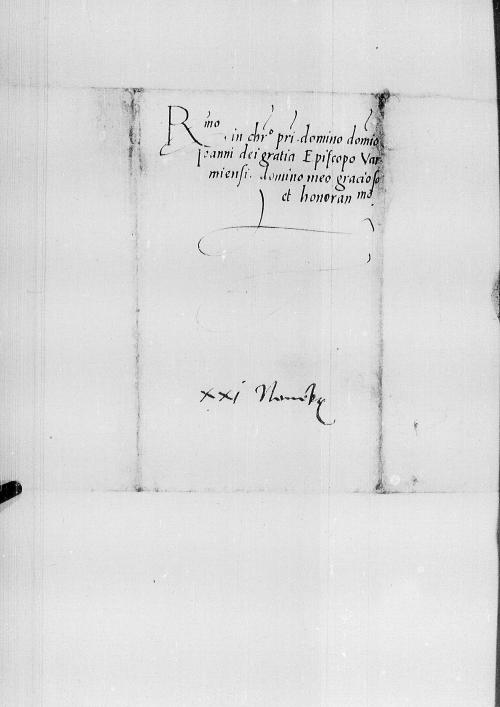 Rmo
in chro pri domino domino
Joanni dei gratia Episcopo Var
miensi domino meo gracioso
et honoran mo
xxj Novembr